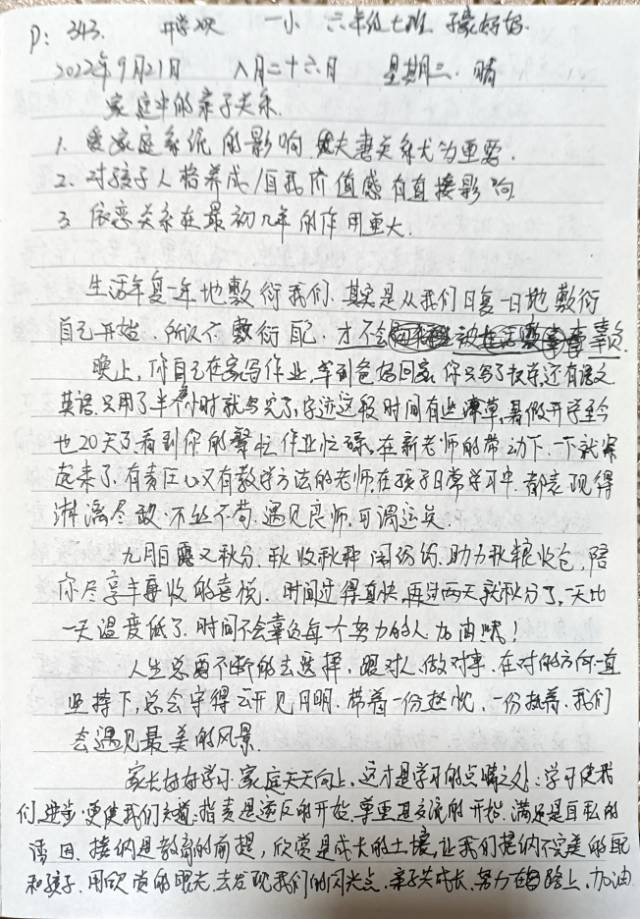 P: 343. 一小 六年级七班
2022年9月21日 八月二十六日 星期三. 晴
家庭中的亲子关系.
1. 受家庭系统的影响. 夫妻关系尤为重要.
2. 对孩子人格养成/自我价值感有直接影响.
3. 依恋关系在最初几年的作用重大.
生活年复一年地敷衍我们. 其实是从我们日复一日地敷衍
自己开始. 所以不敷衍自己. 才不会 被生活 辜负.
晚上, 你自己在家写作业, 等到爸妈回家 你只写了数学. 还有语文
英语. 只用了半个小时就写完了, 字迹这段时间有些潦草, 暑假开学至今
也20天了. 看到你的繁忙 作业忙碌. 在新老师的带动下. 一下就紧
起来了. 有责任心又有教学方法的老师. 在孩子日常学习中. 都表现得
淋漓尽致. 不丝不苟. 遇见良师, 可谓运气.
九月白露又秋分. 秋收秋种闹纷纷. 助力秋粮收仓, 陪
你尽享丰收的喜悦. 时间过得真快. 再过两天就秋分了. 一天比
一天温度低了. 时间不会辜负每个努力的人 加油哦!
人生总要不断的去选择, 跟对人. 做对事. 在对的方向一直
坚持下, 总会守得云开见月明. 带着一份 一份执着. 我们
会遇见最美的风景.
家长好好学习. 家庭天天向上. 这才是学习的点睛之处: 学习使我
们进步. 更使我们知道: 指责是逆反的开始. 尊重是交流的开始. 满足是自私的
诱因. 接纳是教育的前提, 欣赏是成长的土壤. 让我们接纳不完美的自己
和孩子. 用欣赏的眼光. 去发现我们的闪光点. 亲子共成长. 努力在路上. 加油